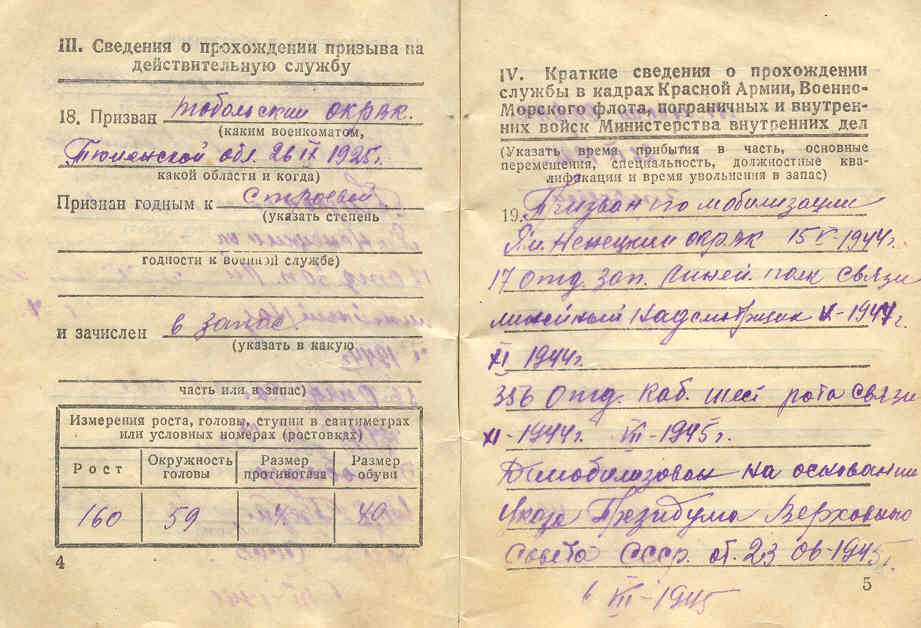 III. Сведения о прохождении призыва на
действительную службу
18. Призван тобольским окрвк.
(каким военкоматом,
Тюменской обл. 26 IX 1925г.
какой области и когда)
Признан годным к строевой
(указать степень
годности к военной службе)
и зачислен в запас
(указать в какую
часть или в запас)
Измерения роста, головы, ступни в сантиметрах
или условных номерах (ростовках)
Рост Окружность головы Размер противогаза Размер обуви
160 59 40
4
IV. Краткие сведения о прохождении
службы в кадрах Красной Армии, Военно-
Морского флота, пограничных и внутрен-
них войск Министерства внутренних дел
(Указать время прибытия в часть, основные
перемещения, специальность, должностные ква-
лификации и время увольнения в запас)
19. Призван по мобилизации
Ям Ненецкий окрвк 15 V-1944г.
17 отд. зап. линей. полк связи
линейный надсмотрщик V-1944г.
XI 1944г.
356 отд. каб. шест рота связи
XI-1944г. VIII-1945г.
Демобилизован на основании
Указа Президиума Верховного
Совета СССР. от. 23 06-1945г.
VIII-1945
5